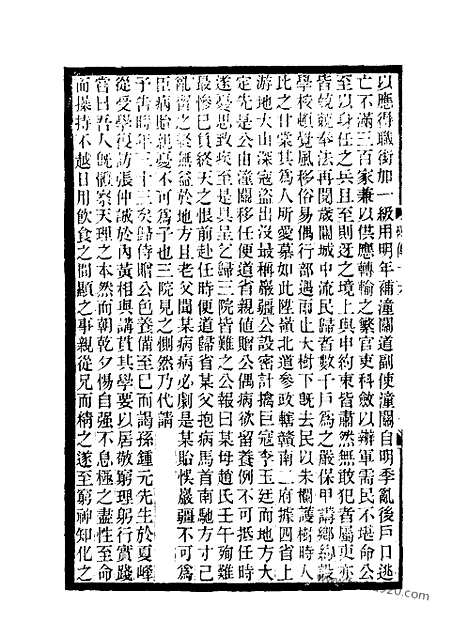 以應得職銜加一級用明年補潼關道副使潼關自明季亂後戶口逃
亡不滿三百家兼以供應轉輸之繁官吏科斂以辦軍需民不堪命公
至以身任之兵且至則迓之境上與申約束皆肅然無敢犯者屬吏亦
皆兢兢奉法再閱歲關城中流民歸者數千戶為之嚴保甲講鄉約設
學校頓覺風移俗易偶行部遇雨止大樹下旣去民以朱欄護樹時人
比之甘棠其為人所愛慕如此陞嶺北道參政轄贛南二府據四省上
游地大山深寇盜出沒最稱巖疆公設密計擒巨寇李玉廷而地方大
定先是公由潼關移任便道省親値贈公偶病欲留養例不可抵任時
遂憂思致疾至是具呈乞歸三院皆難之公報曰某母趙氏壬午殉難
最慘已負終天之恨前赴任時便道歸省某父抱病馬首南馳方寸已
亂留之無益於地方且老父聞某病病必劇是某貽悞巖疆不可為
臣病貽親憂不可為子也三院見之惻然乃代請
予告時年三十三矣歸侍贈公色養備至已而謁孫鍾元先生於夏峰
從受學復訪張仲誠於內黃相與講貫其學要以居敬窮理躬行實踐
嘗曰吾人旣體察天理之本然而朝乾夕惕自强不息極之盡性至命
而操持不越日用飲食之間顯之事親從兄而精之遂至窮神知化之